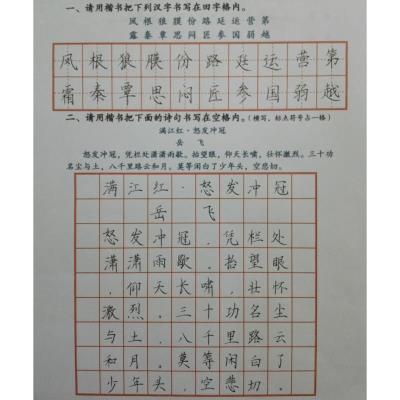 一、请用楷书把下列汉字书写在田字格内。
风根狼膜份路廷运营第
霜秦覃思闷匠参国弱越
风根狼膜份路廷运营第
霜秦覃思闷匠参国弱越
二、请用楷书把下面的诗句书写在空格内。(横写，标点符号占一格)
满江红·怒发冲冠
岳 飞
怒发冲冠，凭栏处潇潇雨歇。抬望眼，仰天长啸，壮怀激烈。三十功
名尘与土，八千里路云和月。莫等闲白了少年头，空悲切。
满江红·怒发冲冠
岳 飞
怒发冲冠，凭栏处
潇潇雨歇。抬望眼
，仰天长啸，壮怀
激烈。三十功名尘
与土，八千里路云
和月。莫等闲白了
少年头，空悲切。